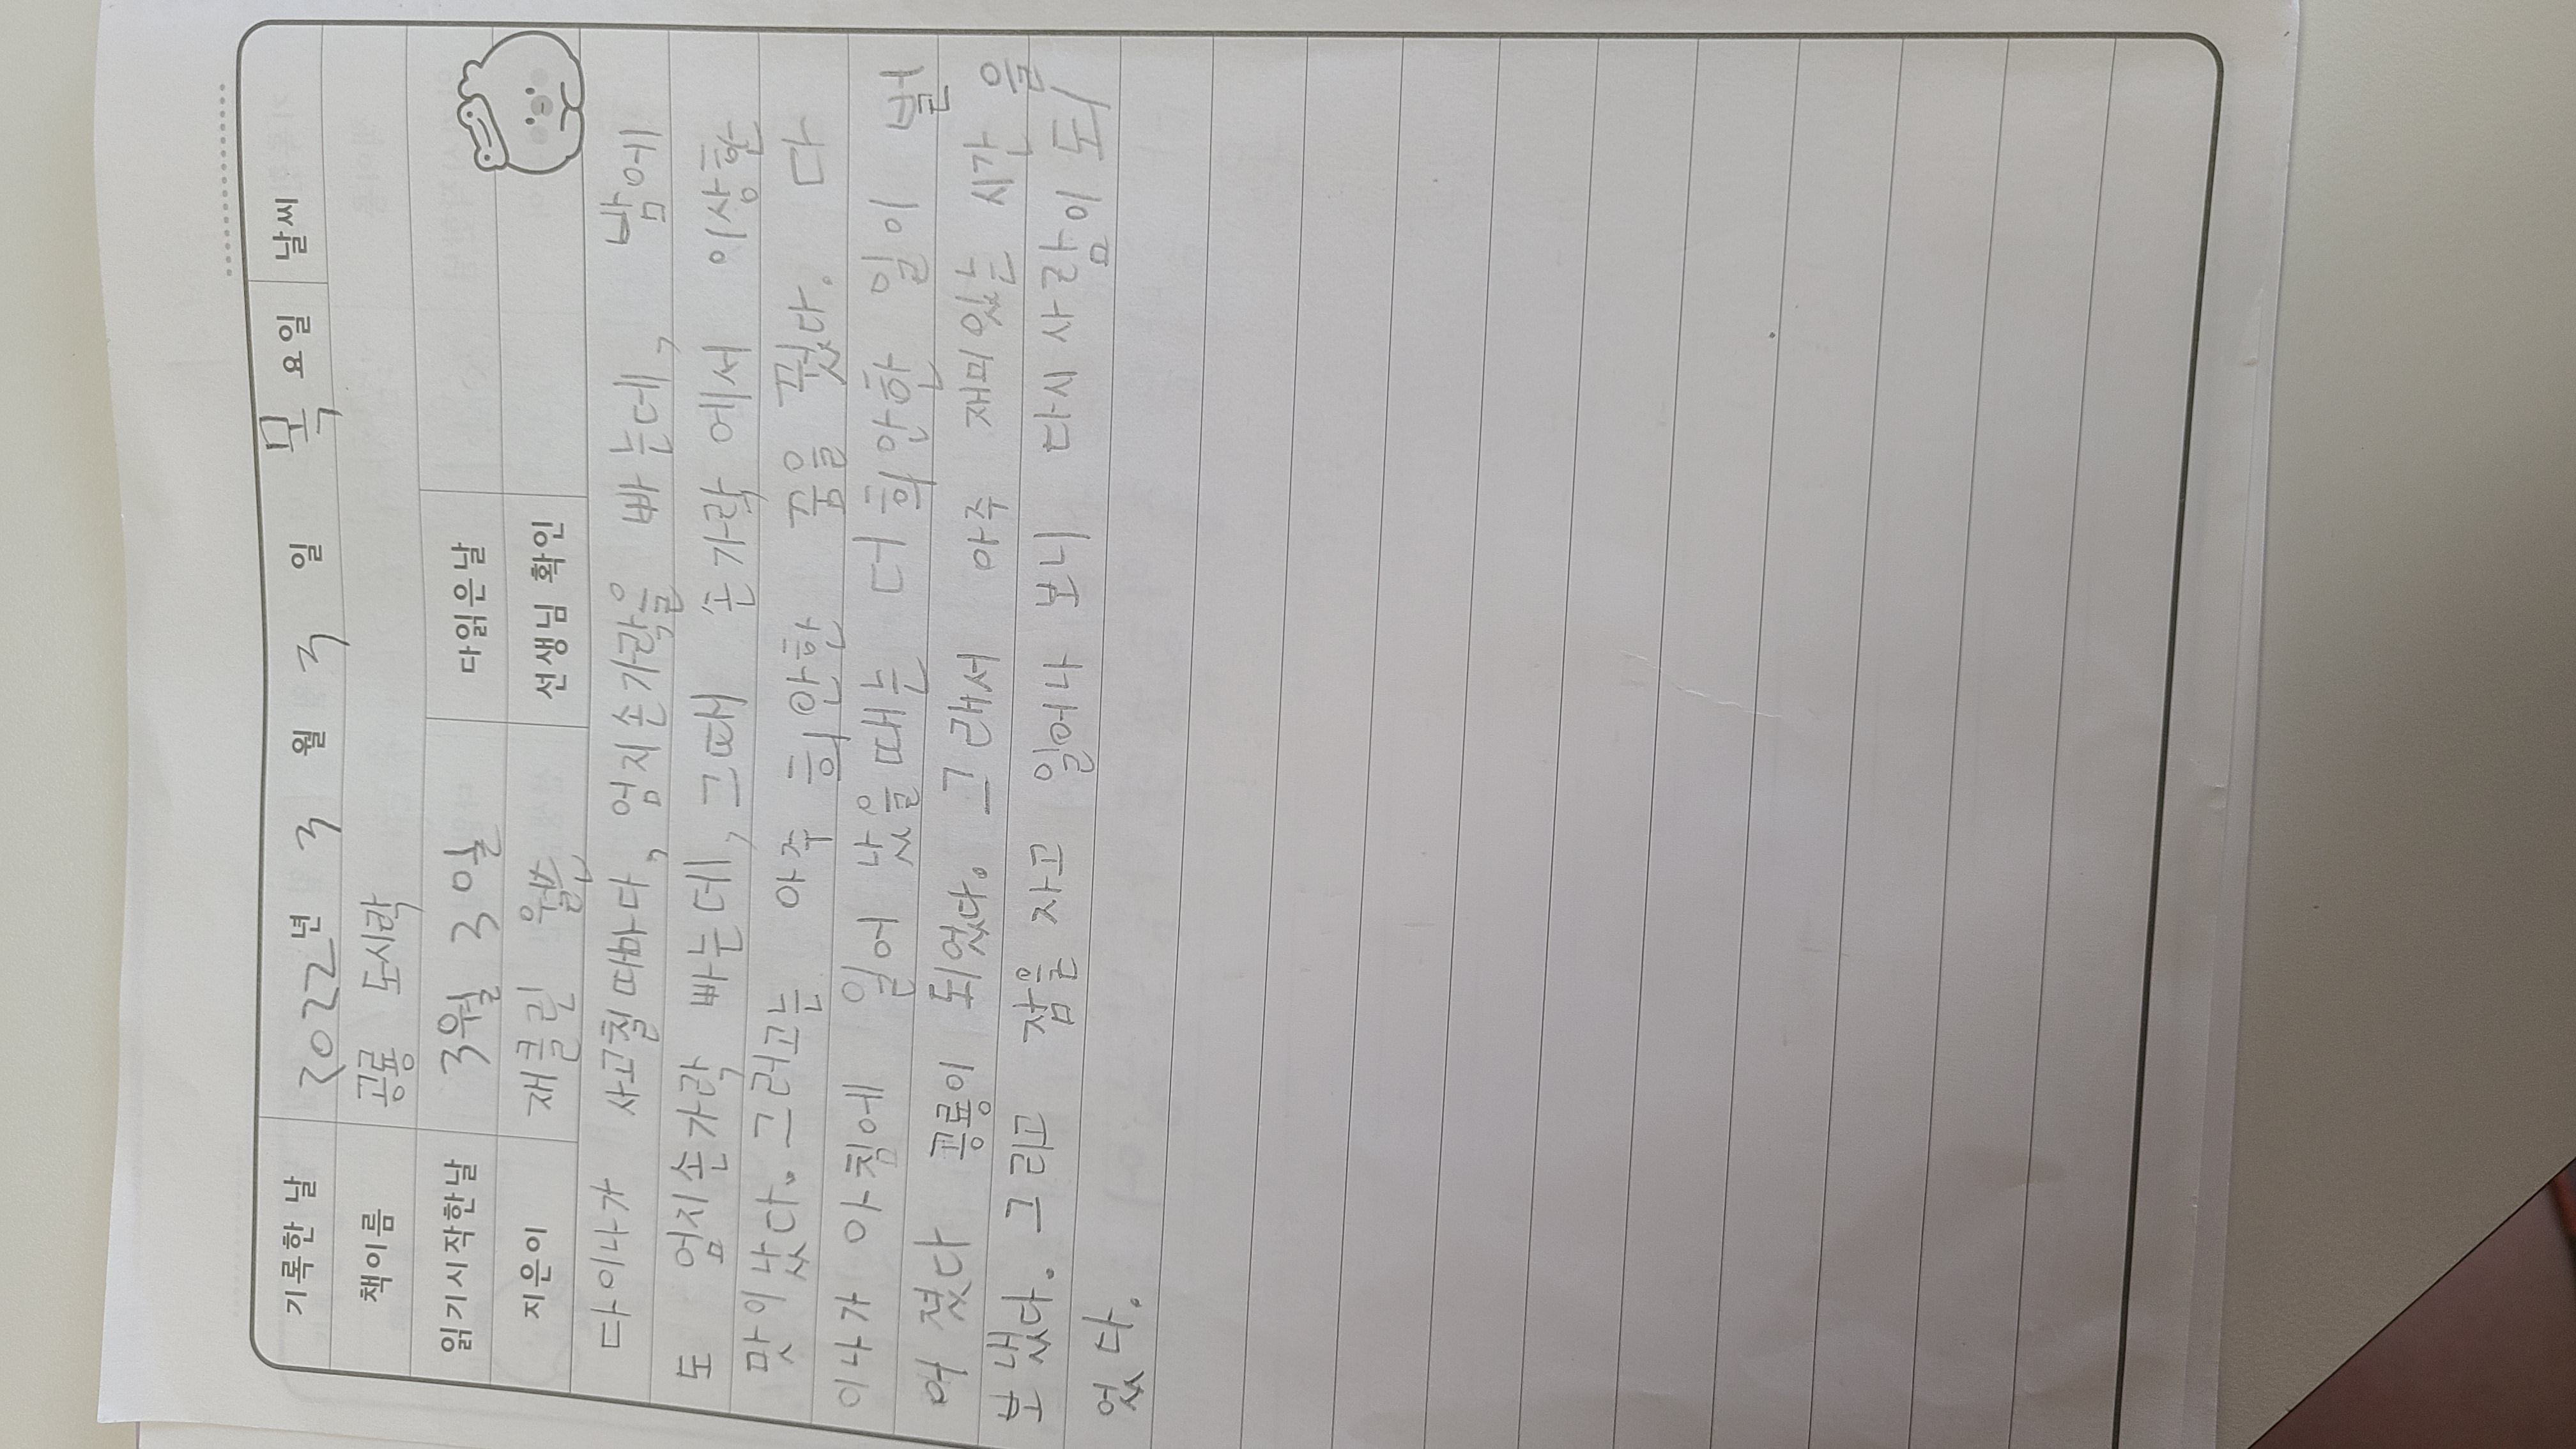 기록한 날 2022년 3 월 3 일 목 요일 날씨
책이름 공룡 도시락
읽기시작한날 3월 3일 다읽은날
지은이 재클린 윌슨 선생님 확인
다이나가 사고칠 때마다, 엄지손가락을 빠는데, 밤에
도 엄지손가락 빠는데, 그때 손가락에서 이상한
맛이났다. 그러고는 아주 희안한 꿈을 꿨다. 다
이나가 아침에 일어 났을때는 더 희안한 일이 벌
어 졌다 공룡이 되었다. 그래서 아주 재미있는 시간을
보냈다. 그리고 잠을 자고 일어나 보니 다시 사람이 되
었다.